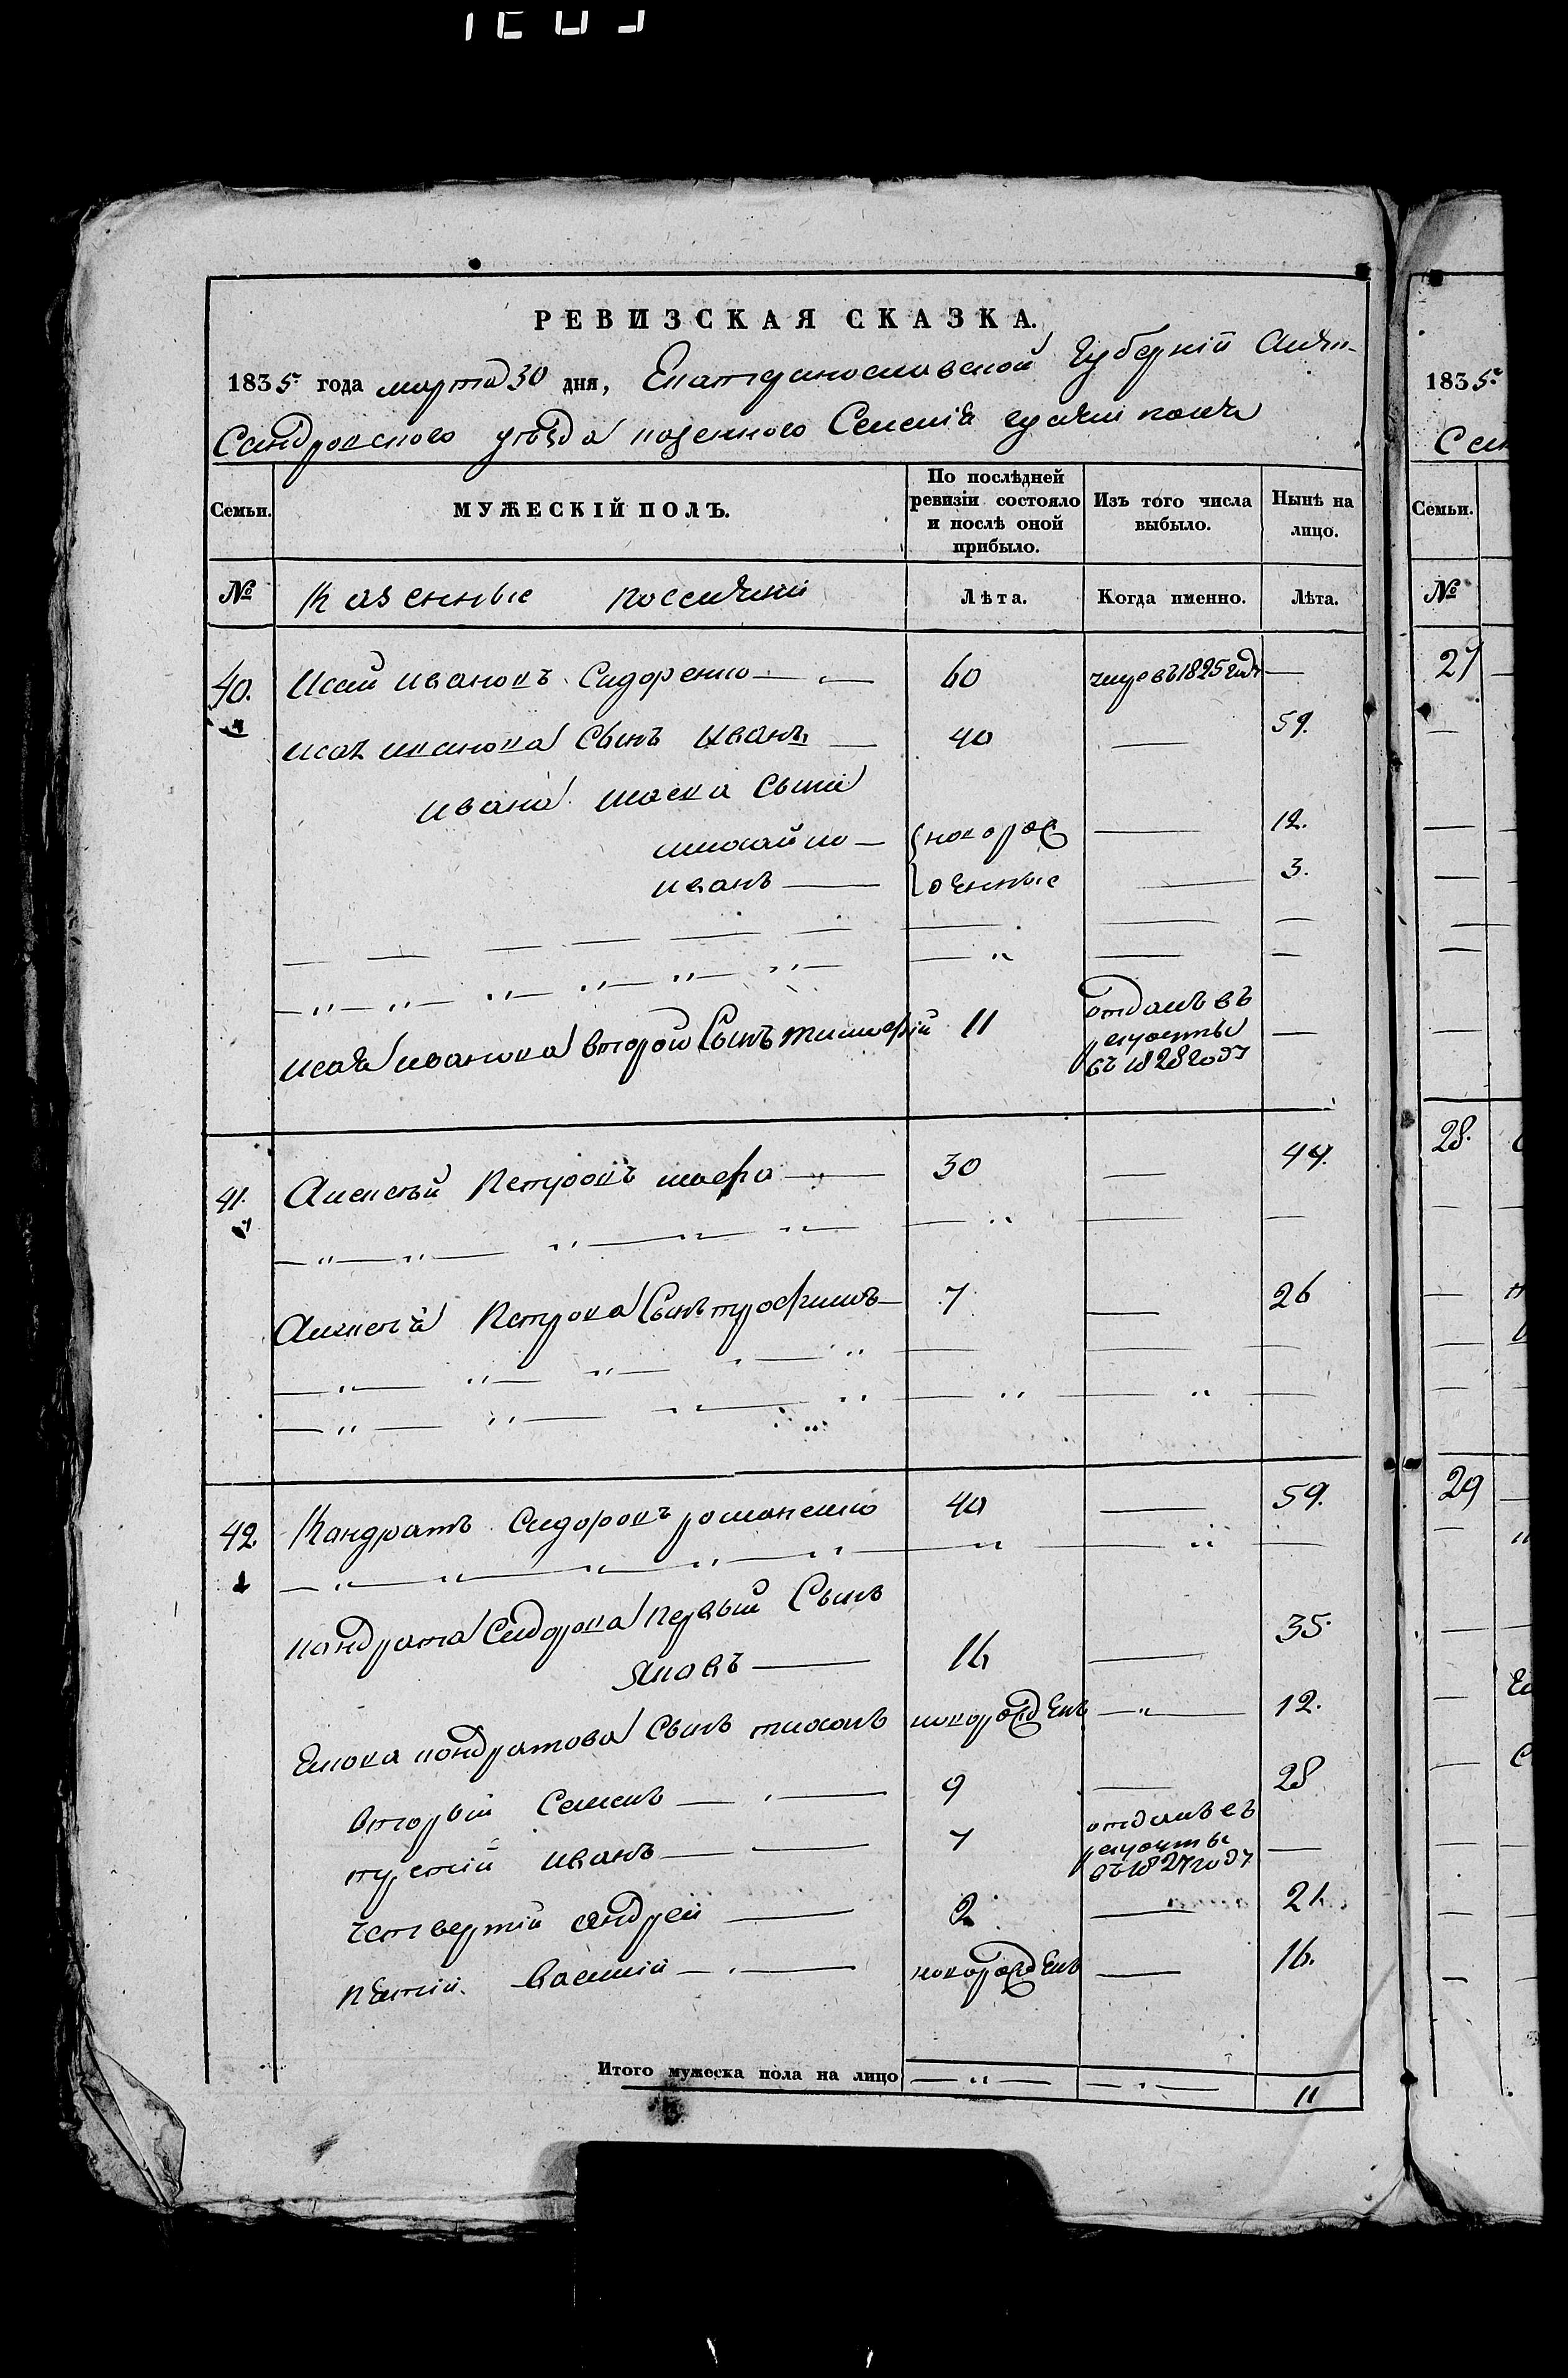 РЕВИЗСКАЯ СКАЗКА.
1835 года марта 30 дня, Екатеринославской Губерніи Алек-
Сандровского уѣзда казенного Селенія
Семьи. МУЖЕСКІЙ ПОЛЪ. По послѣдней ревизіи состояло и послѣ оной прибыло. Изъ того числа выбыло. Нынѣ на лицо.
№ Казенные поселяни Лѣта. Когда именно. Лѣта.
40. Исай Ивановъ Сидоренко 60 въ 1825 году —
Исая Иванова Сынъ Иванъ 40 — 59.
Ивана Сыни
михайло {новорож — 12.
иванъ {денные — 3.
Исая иванова второй Сынъ тимофій 11 отданъ въ рекруты въ 1828 году —
41. Алексѣй Петровъ 30 — 44.
Алексѣя Петрова Сынъ трофимъ 7 — 26
42. Кандратъ Сидоровъ романенко 40 — 59.
кондрата Сидорова первый Сынъ
яковъ 16 — 35.
Екова кондратова Сынъ новорожденъ — 12.
вторый Семенъ 9 — 28
третій иванъ 7 отданъ въ рекруты въ 1827 году —
четвертій андрей 2 — 21.
пѣтій василій новорожденъ — 16.
Итого мужеска пола на лицо 11
1835
Семьи.
№
27
28.
29